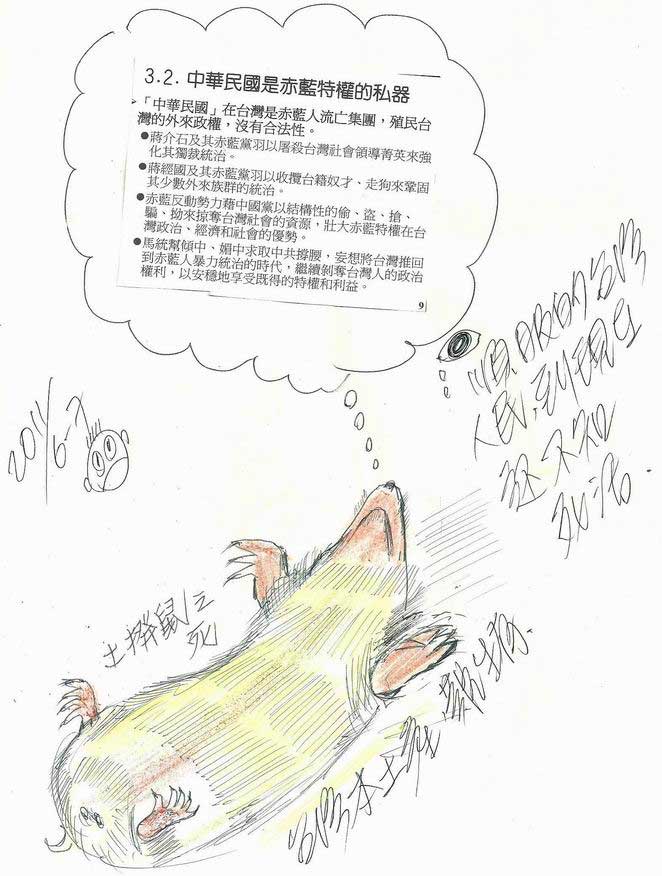 3.2. 中華民國是赤藍特權的私器
「中華民國」在台灣是赤藍人流亡集團，殖民台
灣的外來政權，沒有合法性。
●蔣介石及其赤藍黨羽以屠殺台灣社會領導菁英來強
化其獨裁統治。
●蔣經國及其赤藍黨羽以收攬台籍奴才、走狗來鞏固
其少數外來族群的統治。
●赤藍反動勢力藉中國黨以結構性的偷、盜、搶、
騙、拗來掠奪台灣社會的資源，壯大赤藍特權在台
灣政治、經濟和社會的優勢。
●馬統幫傾中、媚中求取中共撐腰，妄想將台灣推回
到赤藍人暴力統治的時代，繼續剝奪台灣人的政治
權利，以安穩地享受既得的特權和利益。
9
順服的台灣
人民，到現在
還不知
死活
2011/6-7
土撥鼠之
死
台灣本土